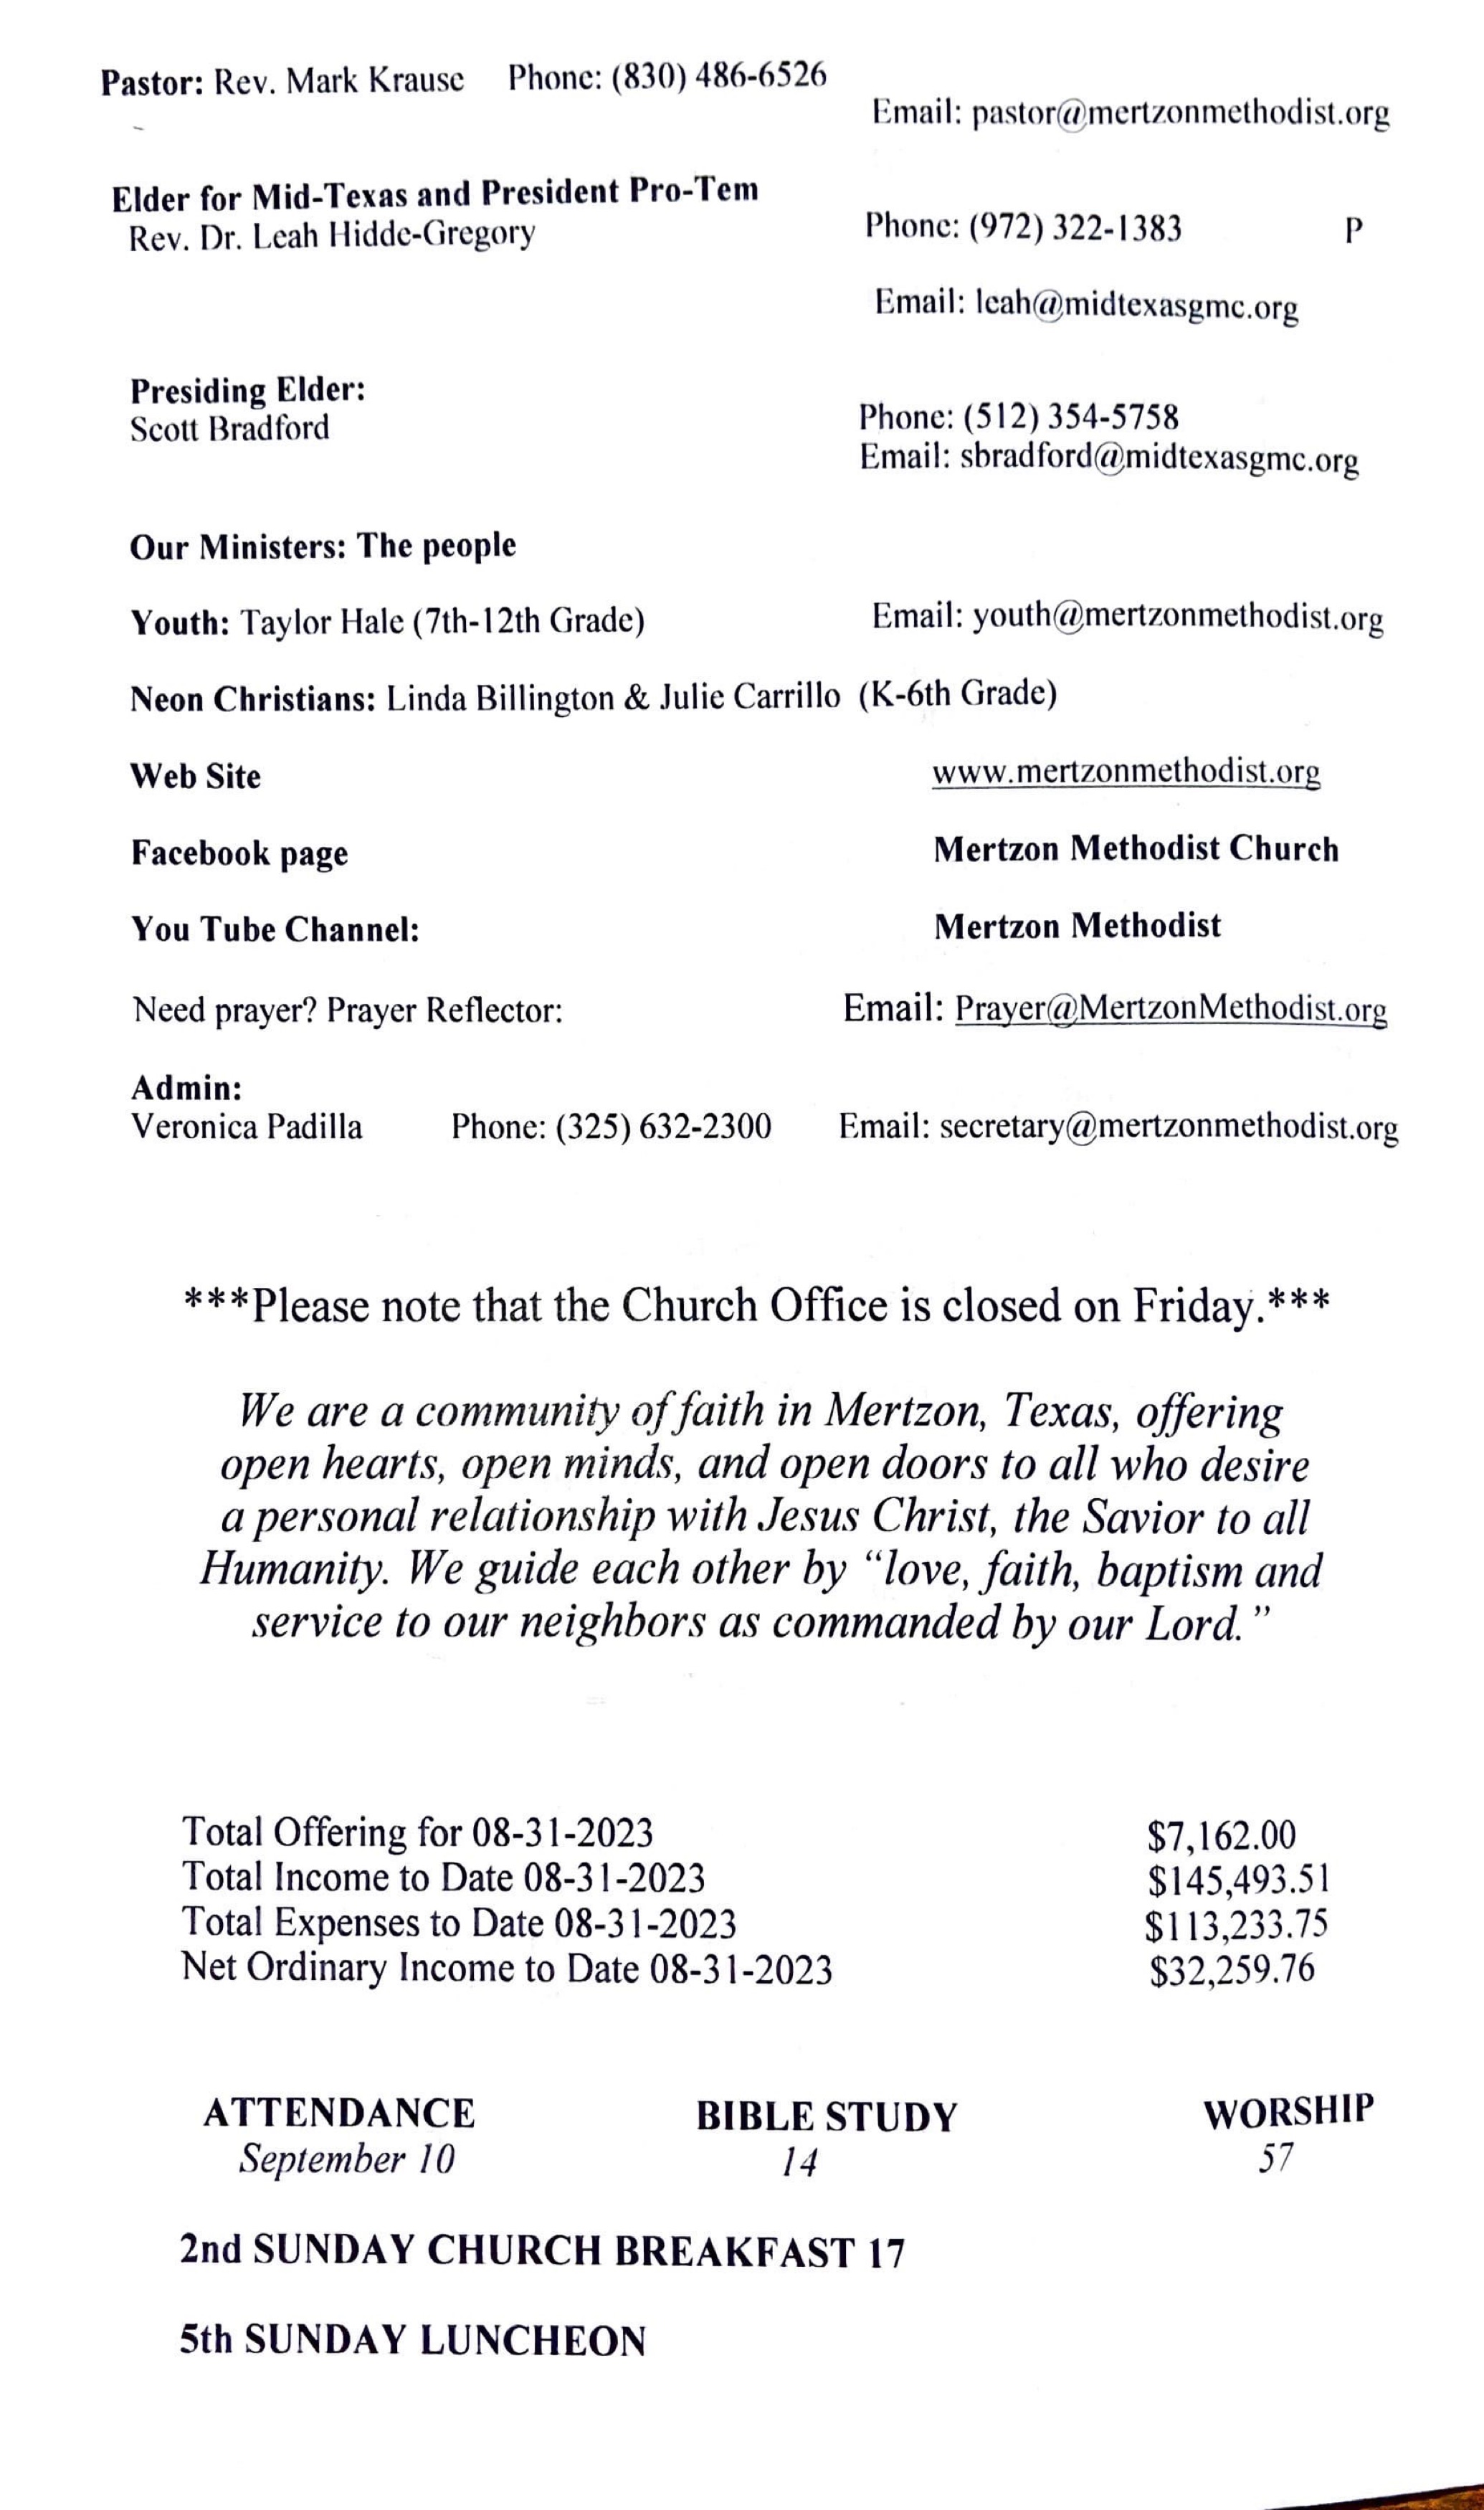 Pastor: Rev. Mark Krause Phone: (830) 486-6526
Email: pastor@mertzonmethodist.org
Elder for Mid-Texas and President Pro-Tem
Rev. Dr. Leah Hidde-Gregory Phone: (972) 322-1383 P
Email: leah@midtexasgmc.org
Presiding Elder:
Scott Bradford Phone: (512) 354-5758
Email: sbradford@midtexasgmc.org
Our Ministers: The people
Youth: Taylor Hale (7th-12th Grade) Email: youth@mertzonmethodist.org
Neon Christians: Linda Billington & Julie Carrillo (K-6th Grade)
Web Site www.mertzonmethodist.org
Facebook page Mertzon Methodist Church
You Tube Channel: Mertzon Methodist
Need prayer? Prayer Reflector: Email: Prayer@MertzonMethodist.org
Admin:
Veronica Padilla Phone: (325) 632-2300 Email: secretary@mertzonmethodist.org
***Please note that the Church Office is closed on Friday.***
We are a community of faith in Mertzon, Texas, offering
open hearts, open minds, and open doors to all who desire
a personal relationship with Jesus Christ, the Savior to all
Humanity. We guide each other by “love, faith, baptism and
service to our neighbors as commanded by our Lord.”
Total Offering for 08-31-2023 $7,162.00
Total Income to Date 08-31-2023 $145,493.51
Total Expenses to Date 08-31-2023 $113,233.75
Net Ordinary Income to Date 08-31-2023 $32,259.76
ATTENDANCE BIBLE STUDY WORSHIP
September 10 14 57
2nd SUNDAY CHURCH BREAKFAST 17
5th SUNDAY LUNCHEON